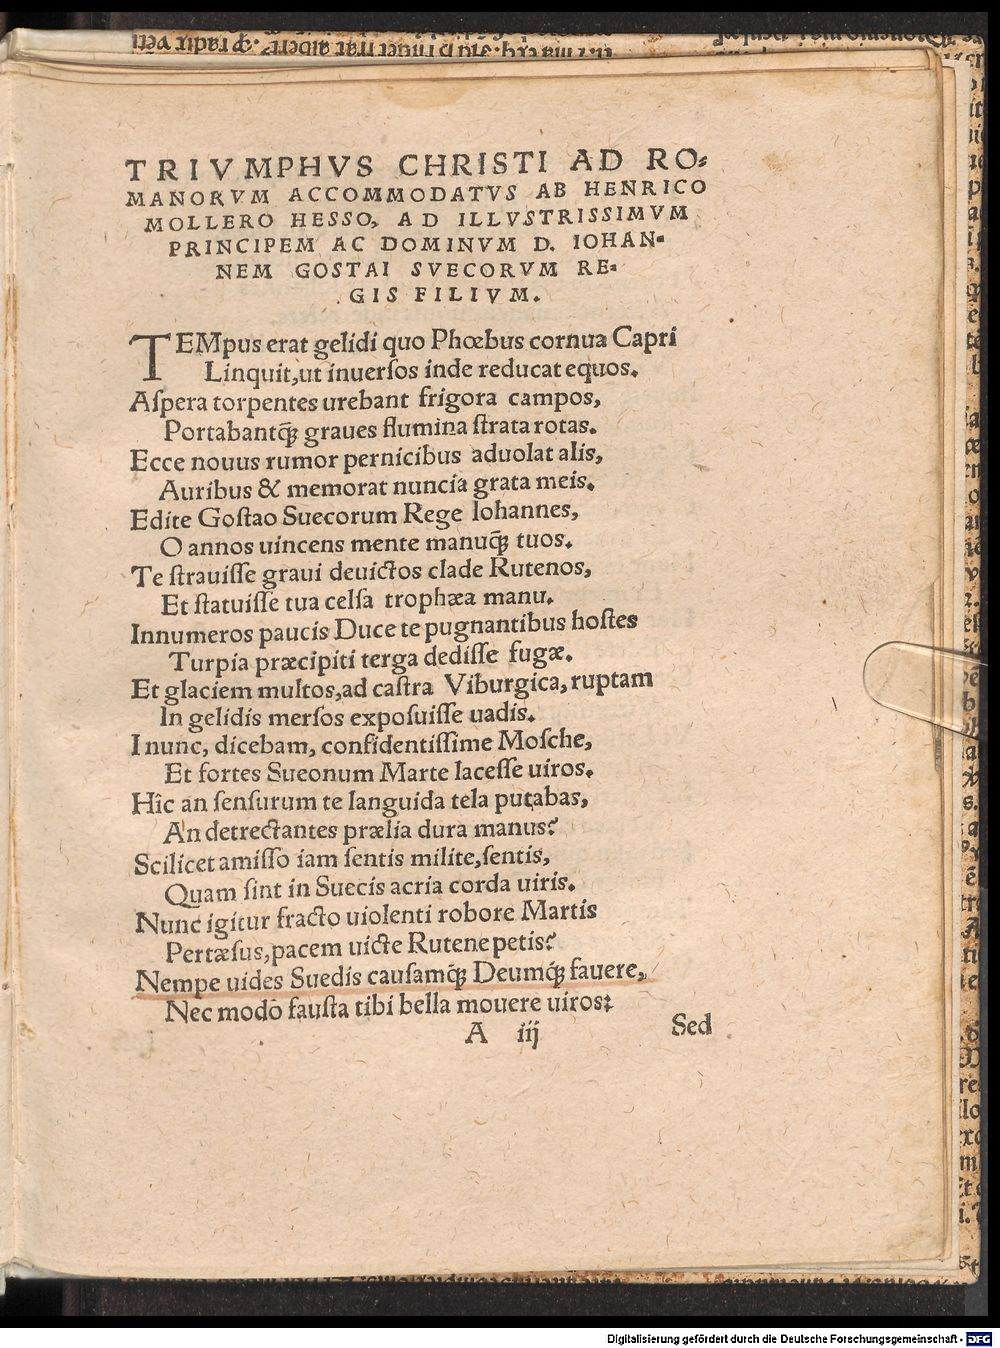 TRIVMPHVS CHRISTI AD RO-
MANORVM ACCOMMODATVS AB HENRICO
MOLLERO HESSO, AD ILLVSTRISSIMVM
PRINCIPEM AC DOMINVM D. IOHAN-
NEM GOSTAI SVECORVM RE-
GIS FILIVM.
TEMpus erat gelidi quo Phœbus cornua Capri
Linquit, ut inuersos inde reducat equos.
Aſpera torpentes urebant frigora campos,
Portabantq́ꝫ graues flumina ſtrata rotas.
Ecce nouus rumor pernicibus aduolat alis,
Auribus & memorat nuncia grata meis.
Edite Goſtao Suecorum Rege Iohannes,
O annos uincens mente manuq́ꝫ tuos.
Te ſtrauiſſe graui deuictos clade Rutenos,
Et ſtatuiſſe tua celſa trophæa manu.
Innumeros paucis Duce te pugnantibus hoſtes
Turpia præcipiti terga dediſſe fugæ.
Et glaciem multos, ad caſtra Viburgica, ruptam
In gelidis merſos expoſuiſſe uadis.
I nunc, dicebam, confidentiſſime Moſche,
Et fortes Sueonum Marte laceſſe uiros.
Hîc an ſenſurum te languida tela putabas,
An detrectantes prælia dura manus?
Scilicet amiſſo iam ſentis milite, ſentis,
Quam ſint in Suecis acria corda uiris.
Nunc igitur fracto uiolenti robore Martis
Pertæſus, pacem uicte Rutene petis?
Nempe uides Suedis cauſamq́ꝫ Deumq́ꝫ fauere,
Nec modò fauſta tibi bella mouere uiros?
A iij Sed
Digitalisierung gefördert durch die Deutsche Forschungsgemeinschaft - DFG